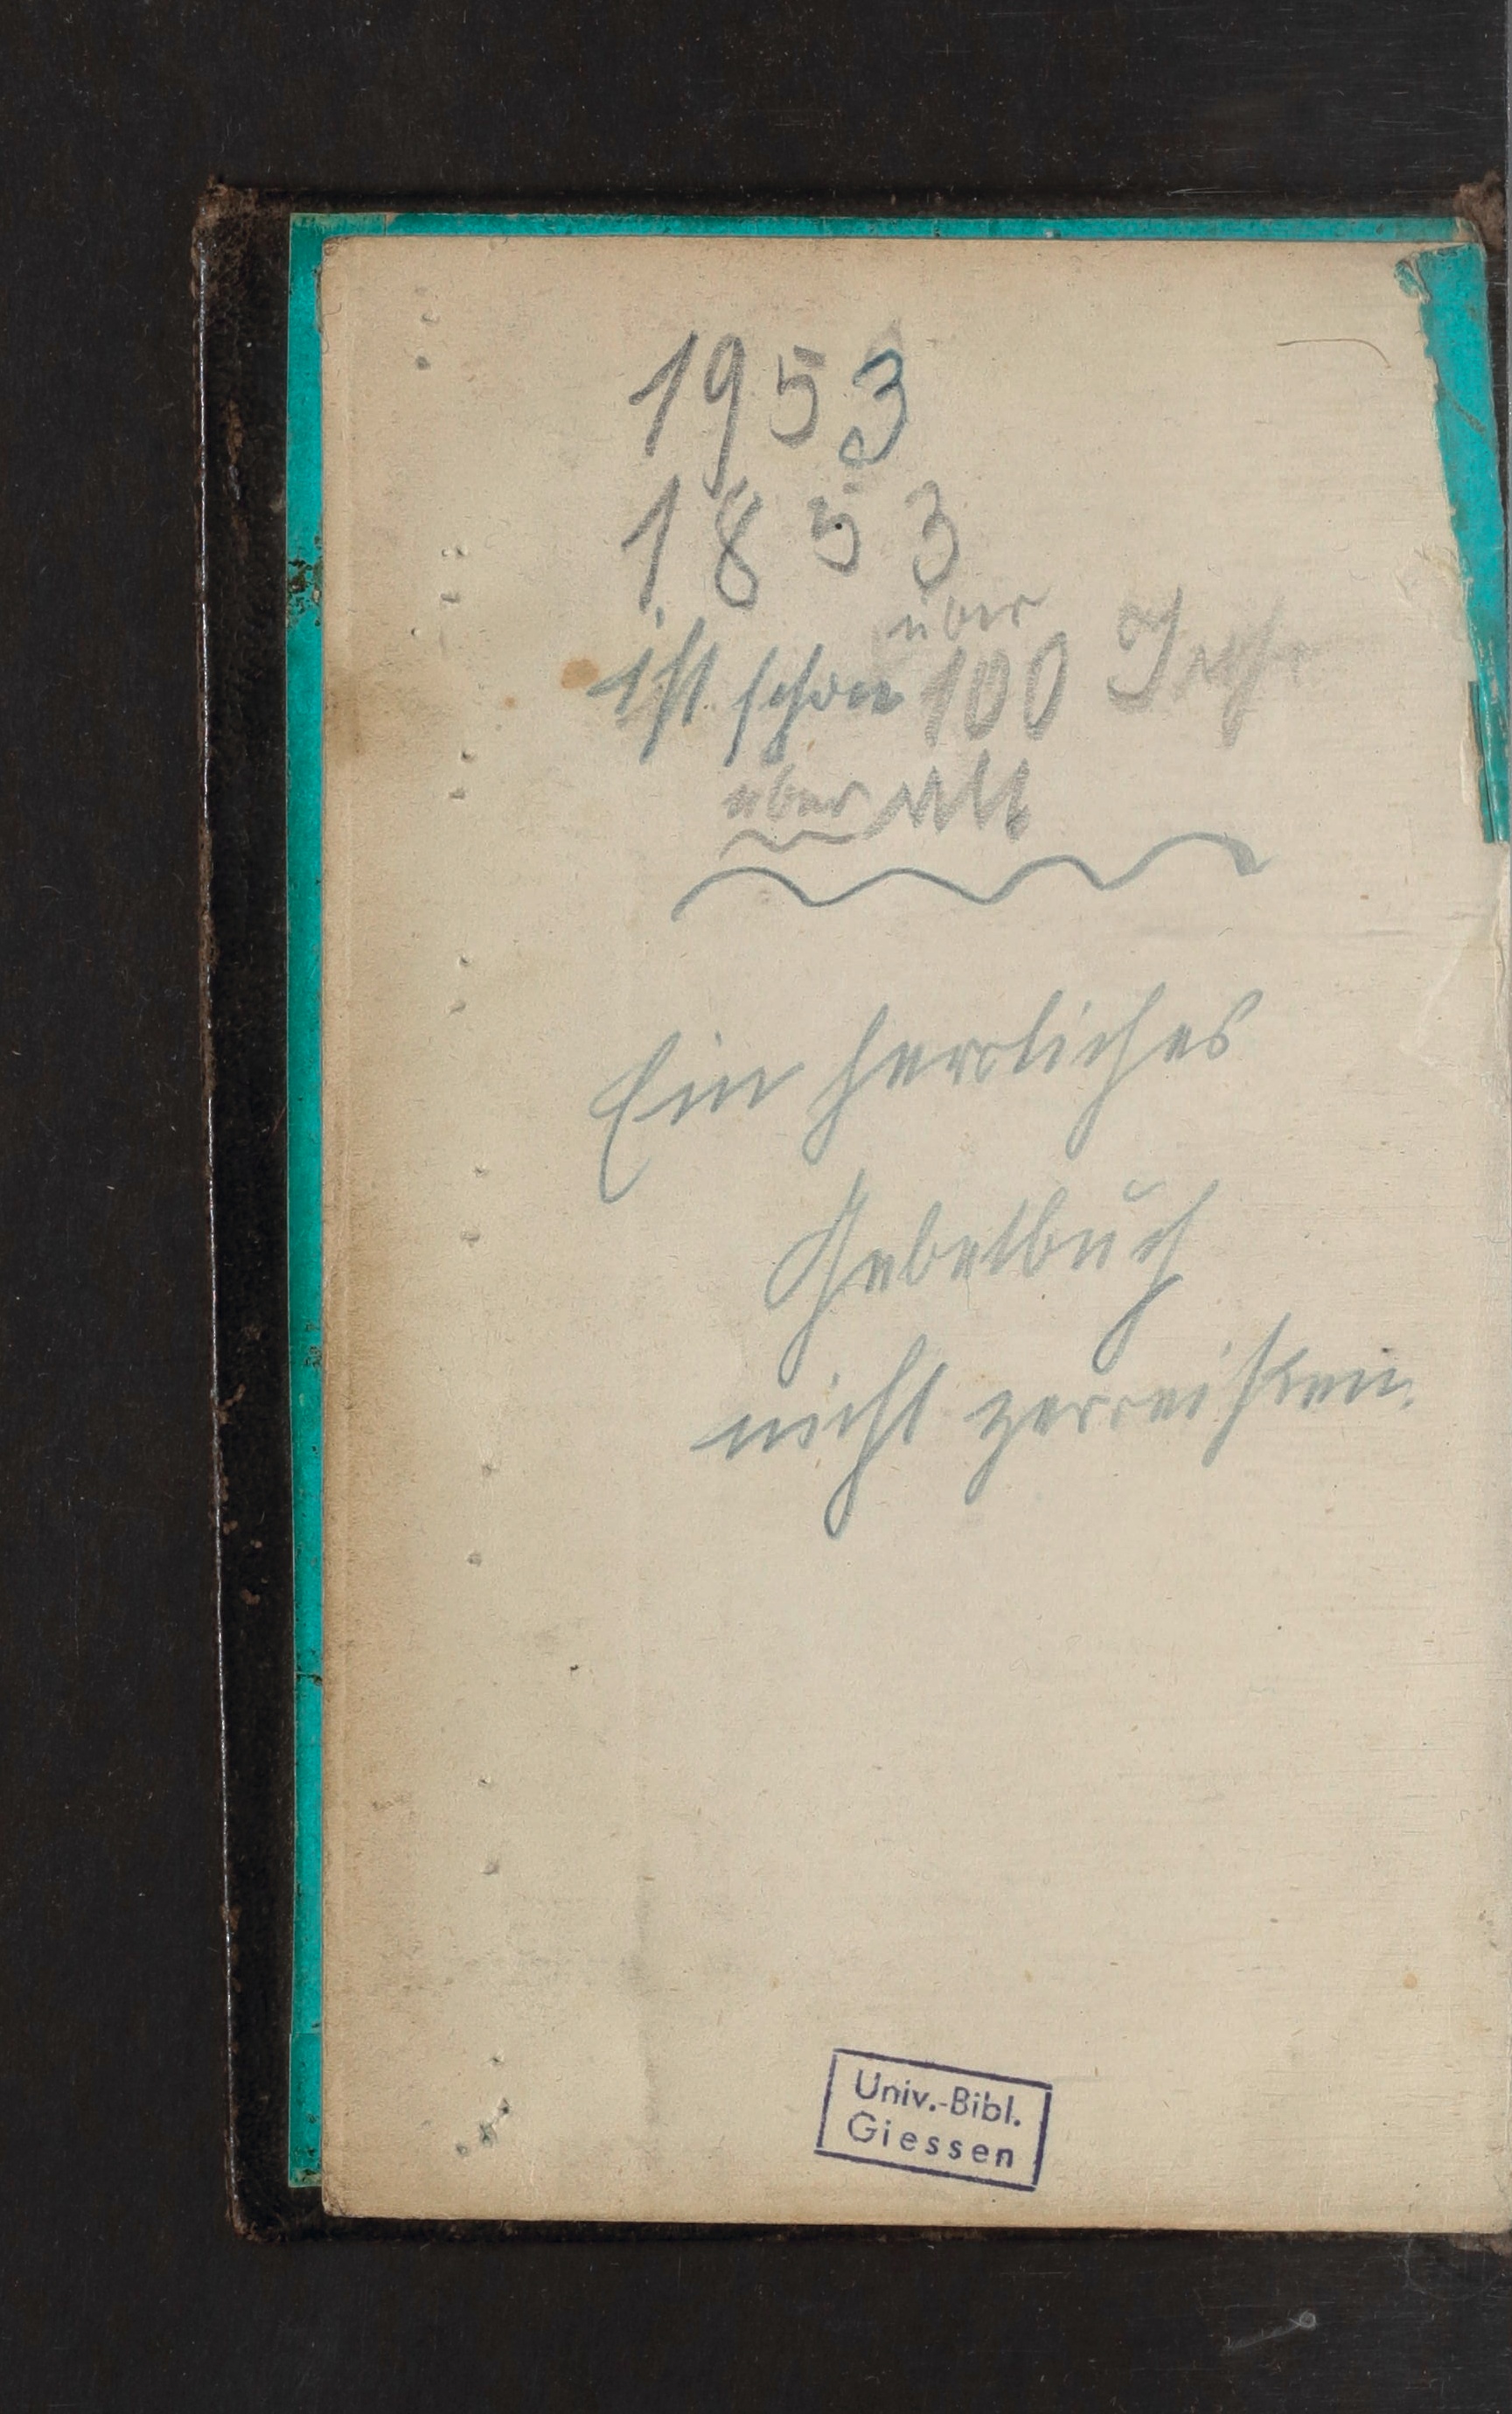 1953
1853
über
ist schon 100 Jahr
über Alt
Ein herrliches
Gebetbuch
nicht zerreißen.
Univ.-Bibl.
Giessen